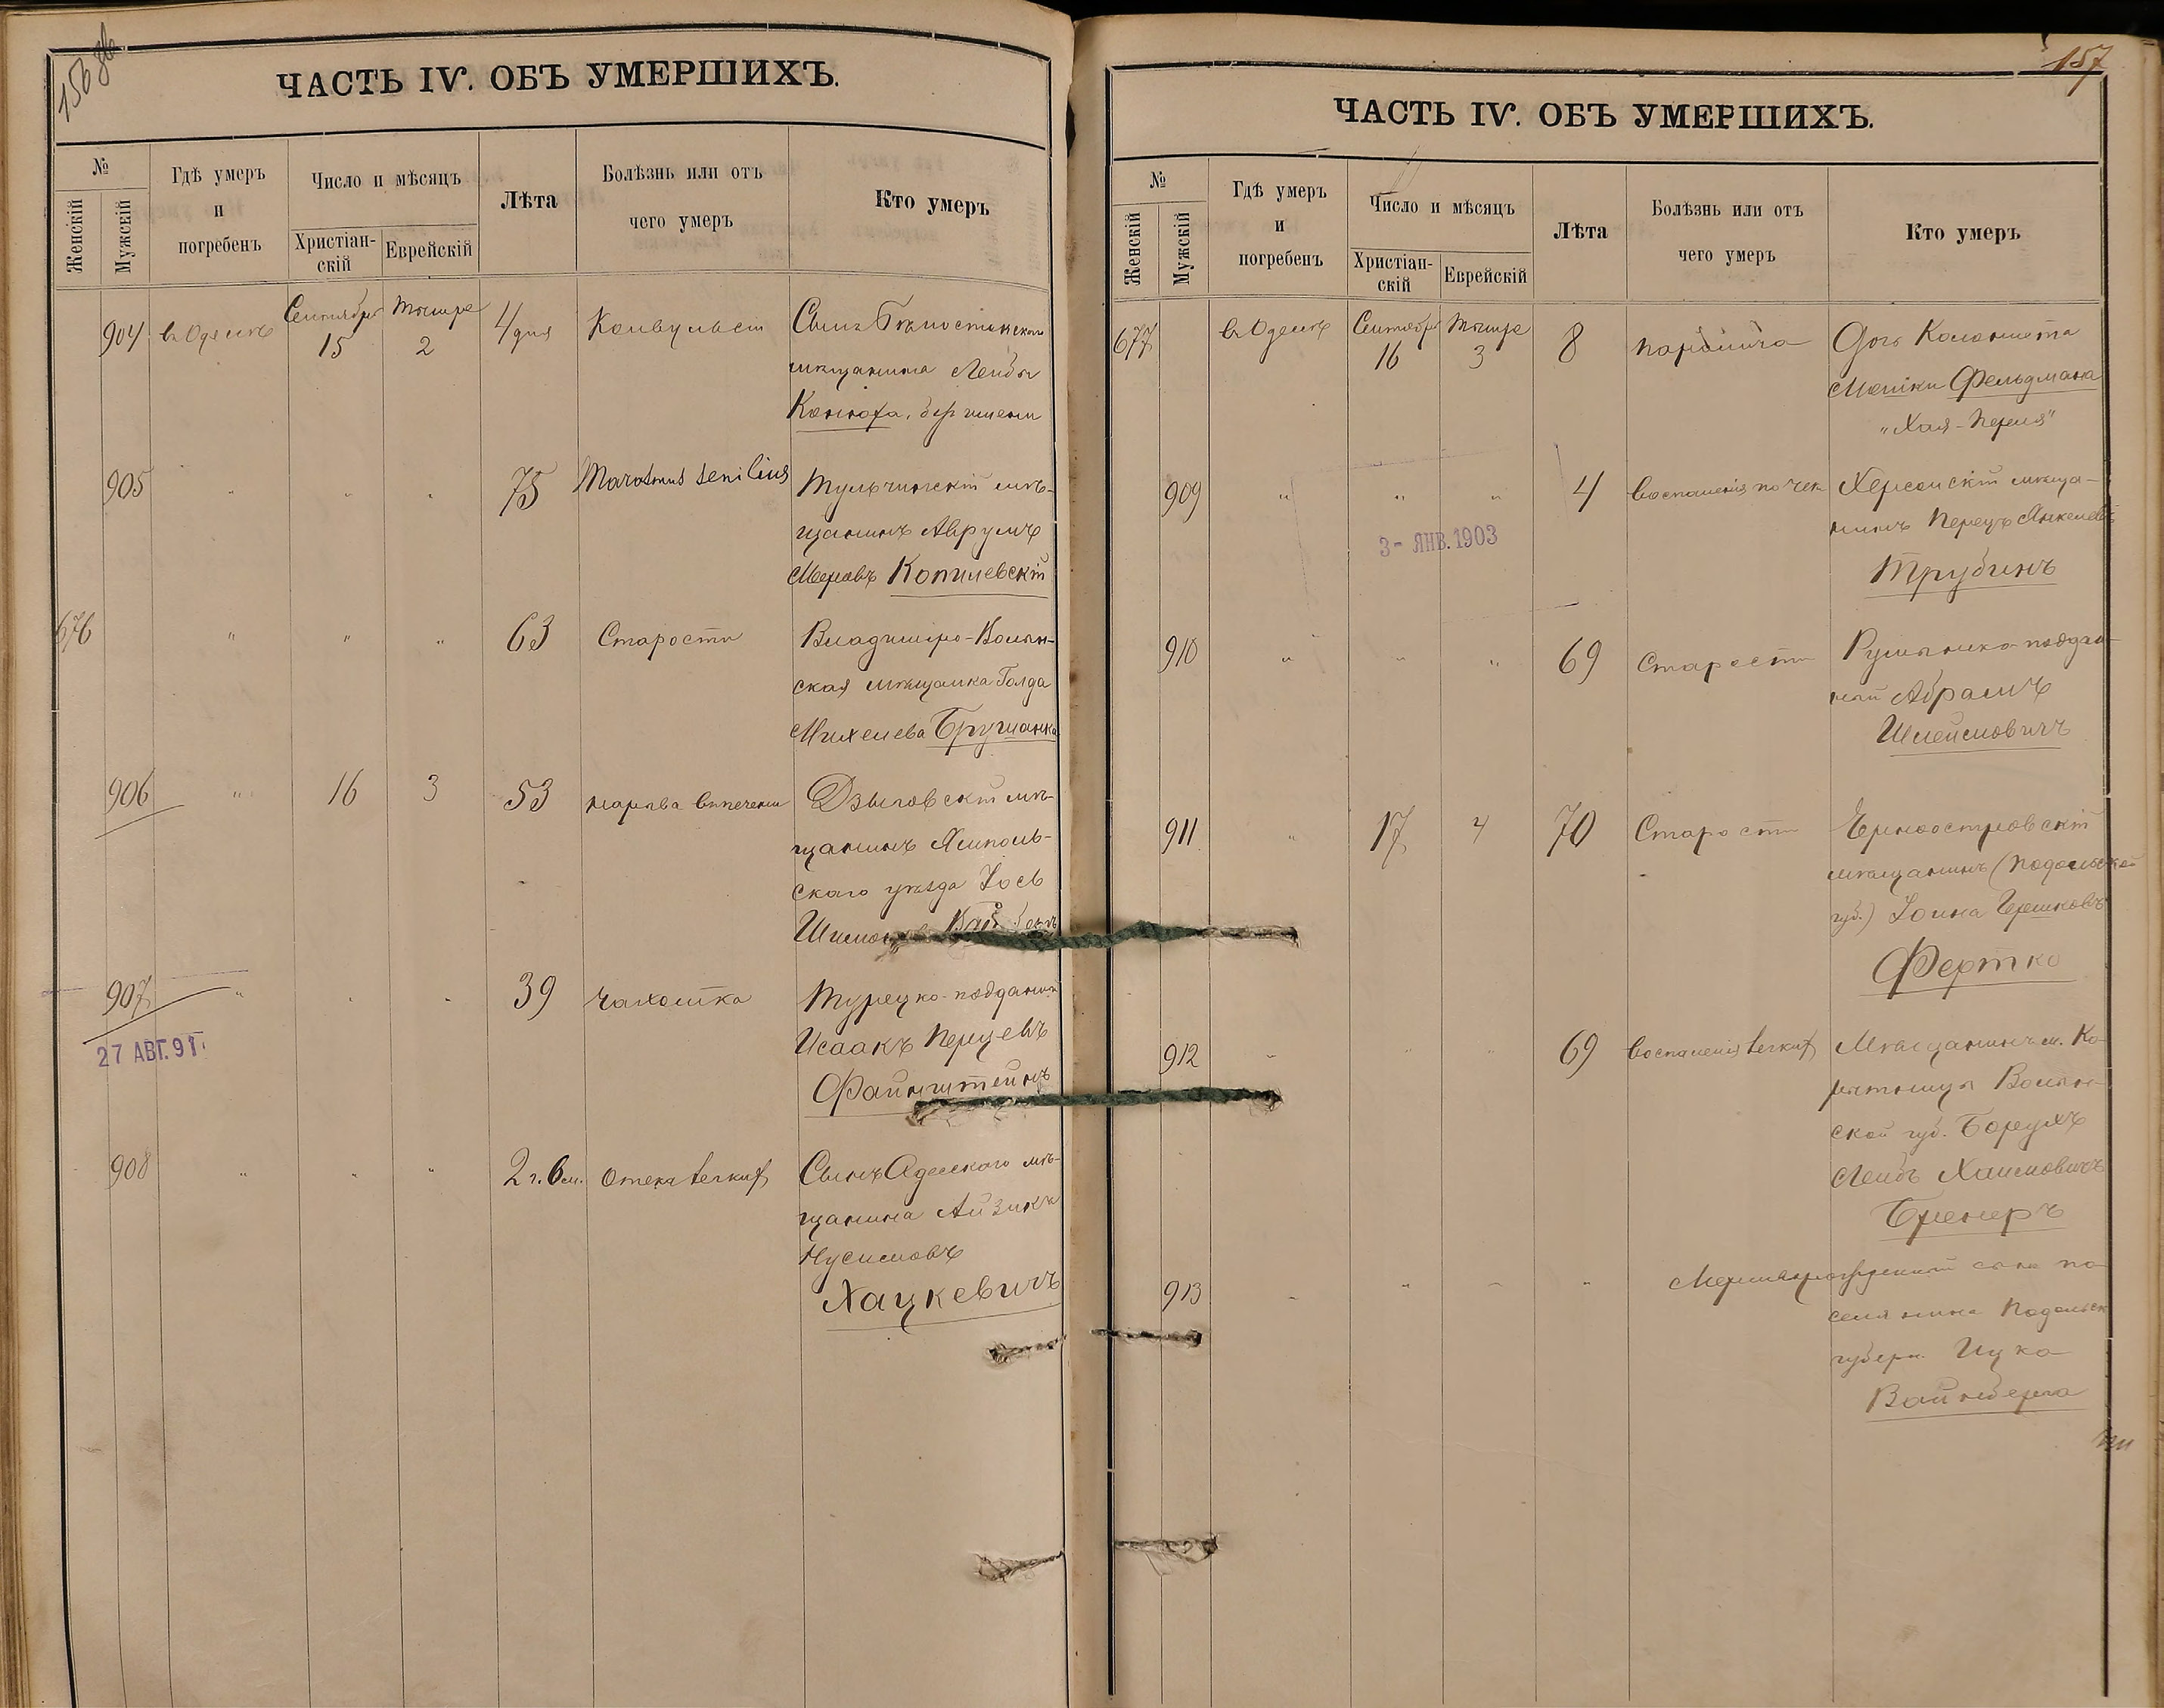 156 об
ЧАСТЬ IV. ОБЪ УМЕРШИХЪ.
№
Женскій
Мужскій
Гдѣ умеръ
и
погребенъ
Число и мѣсяцъ
Христіан-
скій
Еврейскій
Лѣта
Болѣзнь или отъ
чего умеръ
Кто умеръ
904 въ Одессѣ Сентября 15 Тишре 2 4 дня Конвульсіи Сынъ Бѣлостокскаго
мѣщанина Лейбы
Конюха, безъ имени
905 " " " 75 Marasmus senilius Тульчинскій мѣ-
щанинъ Аврумъ
Меровъ Копилевскій
676 " " " 63 Старости Владиміро-Волын-
ская мѣщанка Голда
Михелева
906 " 16 3 53 нарыва въ печени Дзыговскій мѣ-
щанинъ Ямполь-
скаго уѣзда Іось
907 " " " 39 Чахотка Турецко-подданый
Исаакъ Перцевъ
Файнштейнъ
27 АВГ. 91
908 " " " 2 г. 6 м. Отека легкихъ Сынъ Одесскаго мѣ-
щанина Айзика
Нусимовъ
Хацкевичъ
157
ЧАСТЬ IV. ОБЪ УМЕРШИХЪ.
№
Женскій
Мужскій
Гдѣ умеръ
и
погребенъ
Число и мѣсяцъ
Христіан-
скій
Еврейскій
Лѣта
Болѣзнь или отъ
чего умеръ
Кто умеръ
677 въ Одессѣ Сентября 16 Тишре 3 8 Дочь Колониста
Мошки Фельдмана
"Хая-Перля"
909 " " " 4 Воспаленія почек Херсонскій мѣща-
нинъ Перецъ Янкелевъ
Трубинъ
3- ЯНВ. 1903
910 " " " 69 Старости Румынско-поддан-
ный Абрамъ
Шлеймовичъ
911 " 17 4 70 Старости Черноостровскій
мѣщанинъ (Подольской
губ.) Іойна Гершковъ
Фертко
912 " " " 69 Воспаленія легкихъ Мѣщанинъ м. Ко-
рытницы Волын-
ской губ. Борухъ
Лейбъ Хаимовичъ
Бренеръ
913 " " " " Мертворожденный сынъ по-
селянина Подольск
губерн. Ицко
Вайнберга